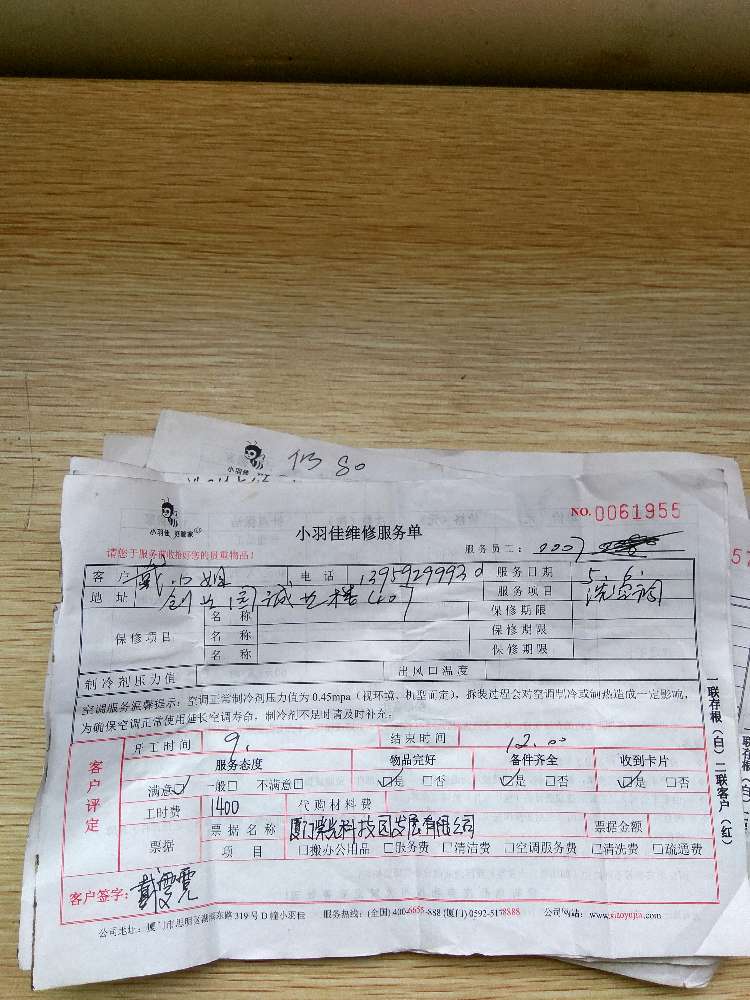 小羽佳
113 80
小羽佳 好管家
小羽佳维修服务单
NO.0061955
请您于服务前收拾好您的贵重物品!
服务员工: 2007
客户 戴小姐 电话 13959299930 服务日期 5.6.
地址 创业园诚业楼407 服务项目 洗空调
保修项目
名称 保修期限
名称 保修期限
名称 保修期限
制冷剂压力值 出风口温度
空调服务温馨提示:空调正常制冷剂压力值为0.45mpa(视环境、机型而定),拆装过程会对空调制冷或制热造成一定影响,
为确保空调正常使用延长空调寿命,制冷剂不足时请及时补充。
客户评定
开工时间 9. 结束时间 12.00
服务态度 物品完好 备件齐全 收到卡片
满意☑ 一般□ 不满意□ ☑是 □否 ☑是 □否 ☑是 □否
工时费 1400 代购材料费
票据
票据名称 厦门紫光科技园发展有限公司 票据金额
项目 □搬办公用品 □服务费 □清洁费 □空调服务费 □清洗费 □疏通费
客户签字:戴雯霓
公司地址:厦门市思明区湖滨东路319号D幢小羽佳 服务热线:(全国)400-6655-888 (厦门)0592-5178888 公司网站:www.xiaoyujia.com
一联存根(白) 二联客户(红)